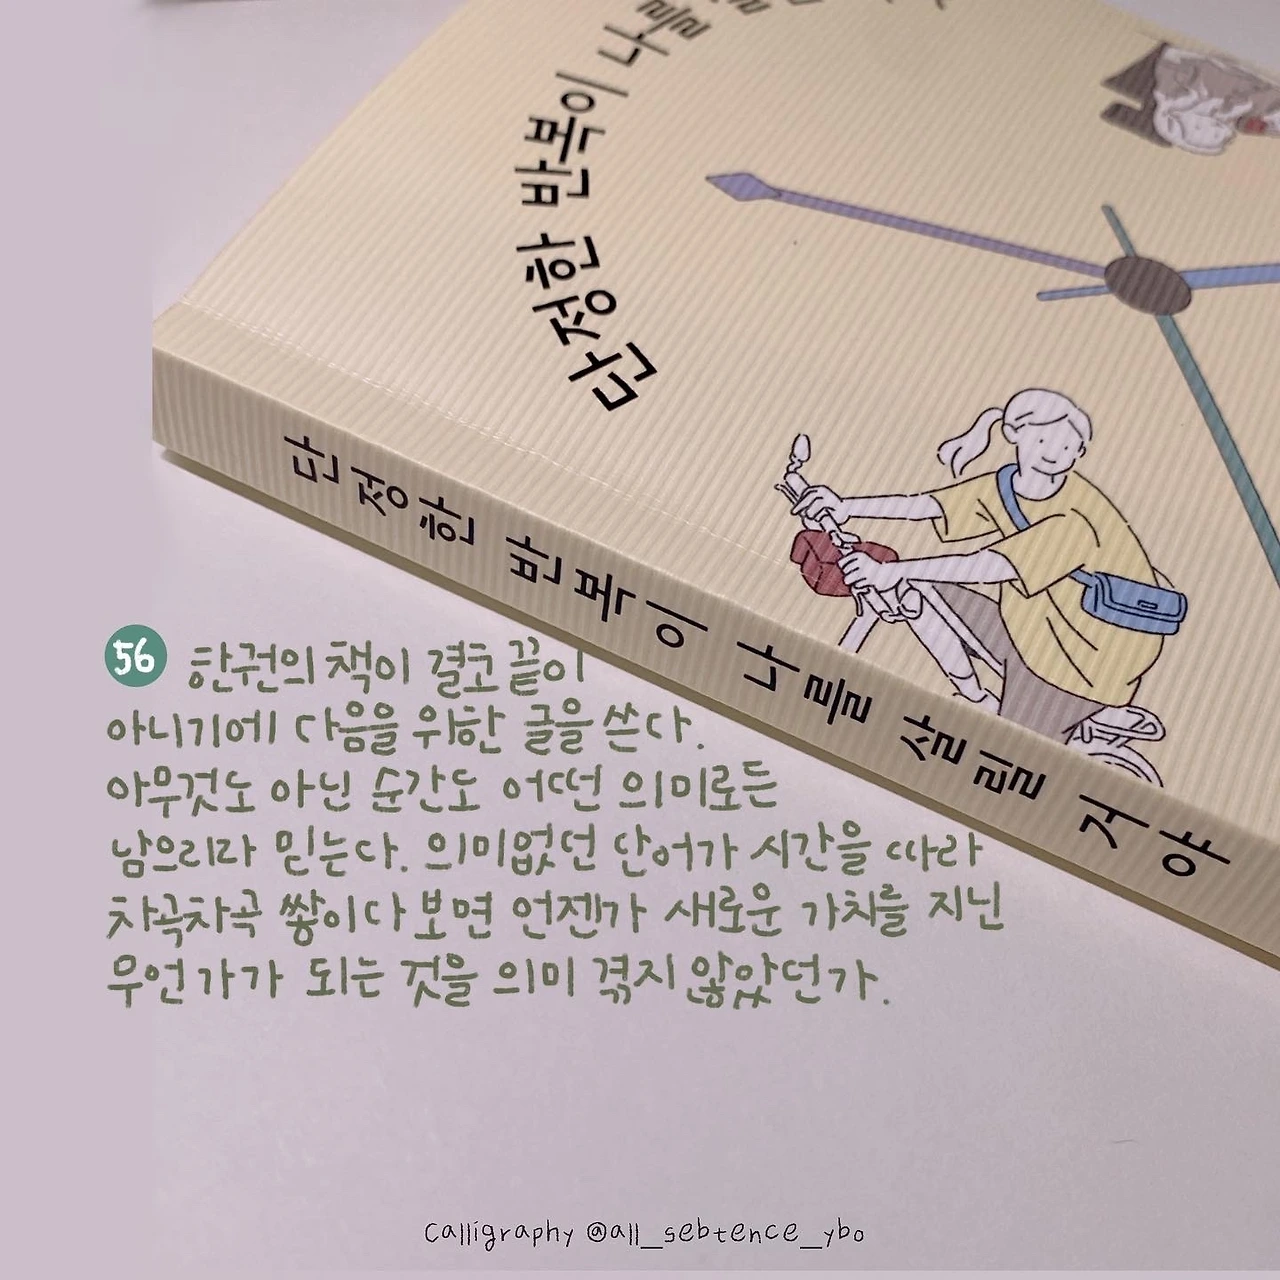 단정한 반복이 나를
단정한 반복이 나를 살릴 거야
56 한권의 책이 결코 끝이
아니기에 다음을 위한 글을 쓴다.
아무것도 아닌 순간도 어떤 의미로든
남으리라 믿는다. 의미없던 단어가 시간을 따라
차곡차곡 쌓이다 보면 언젠가 새로운 가치를 지닌
무언가가 되는 것을 의미 겪지 않았던가.
calligraphy @all_sebtence_ybo